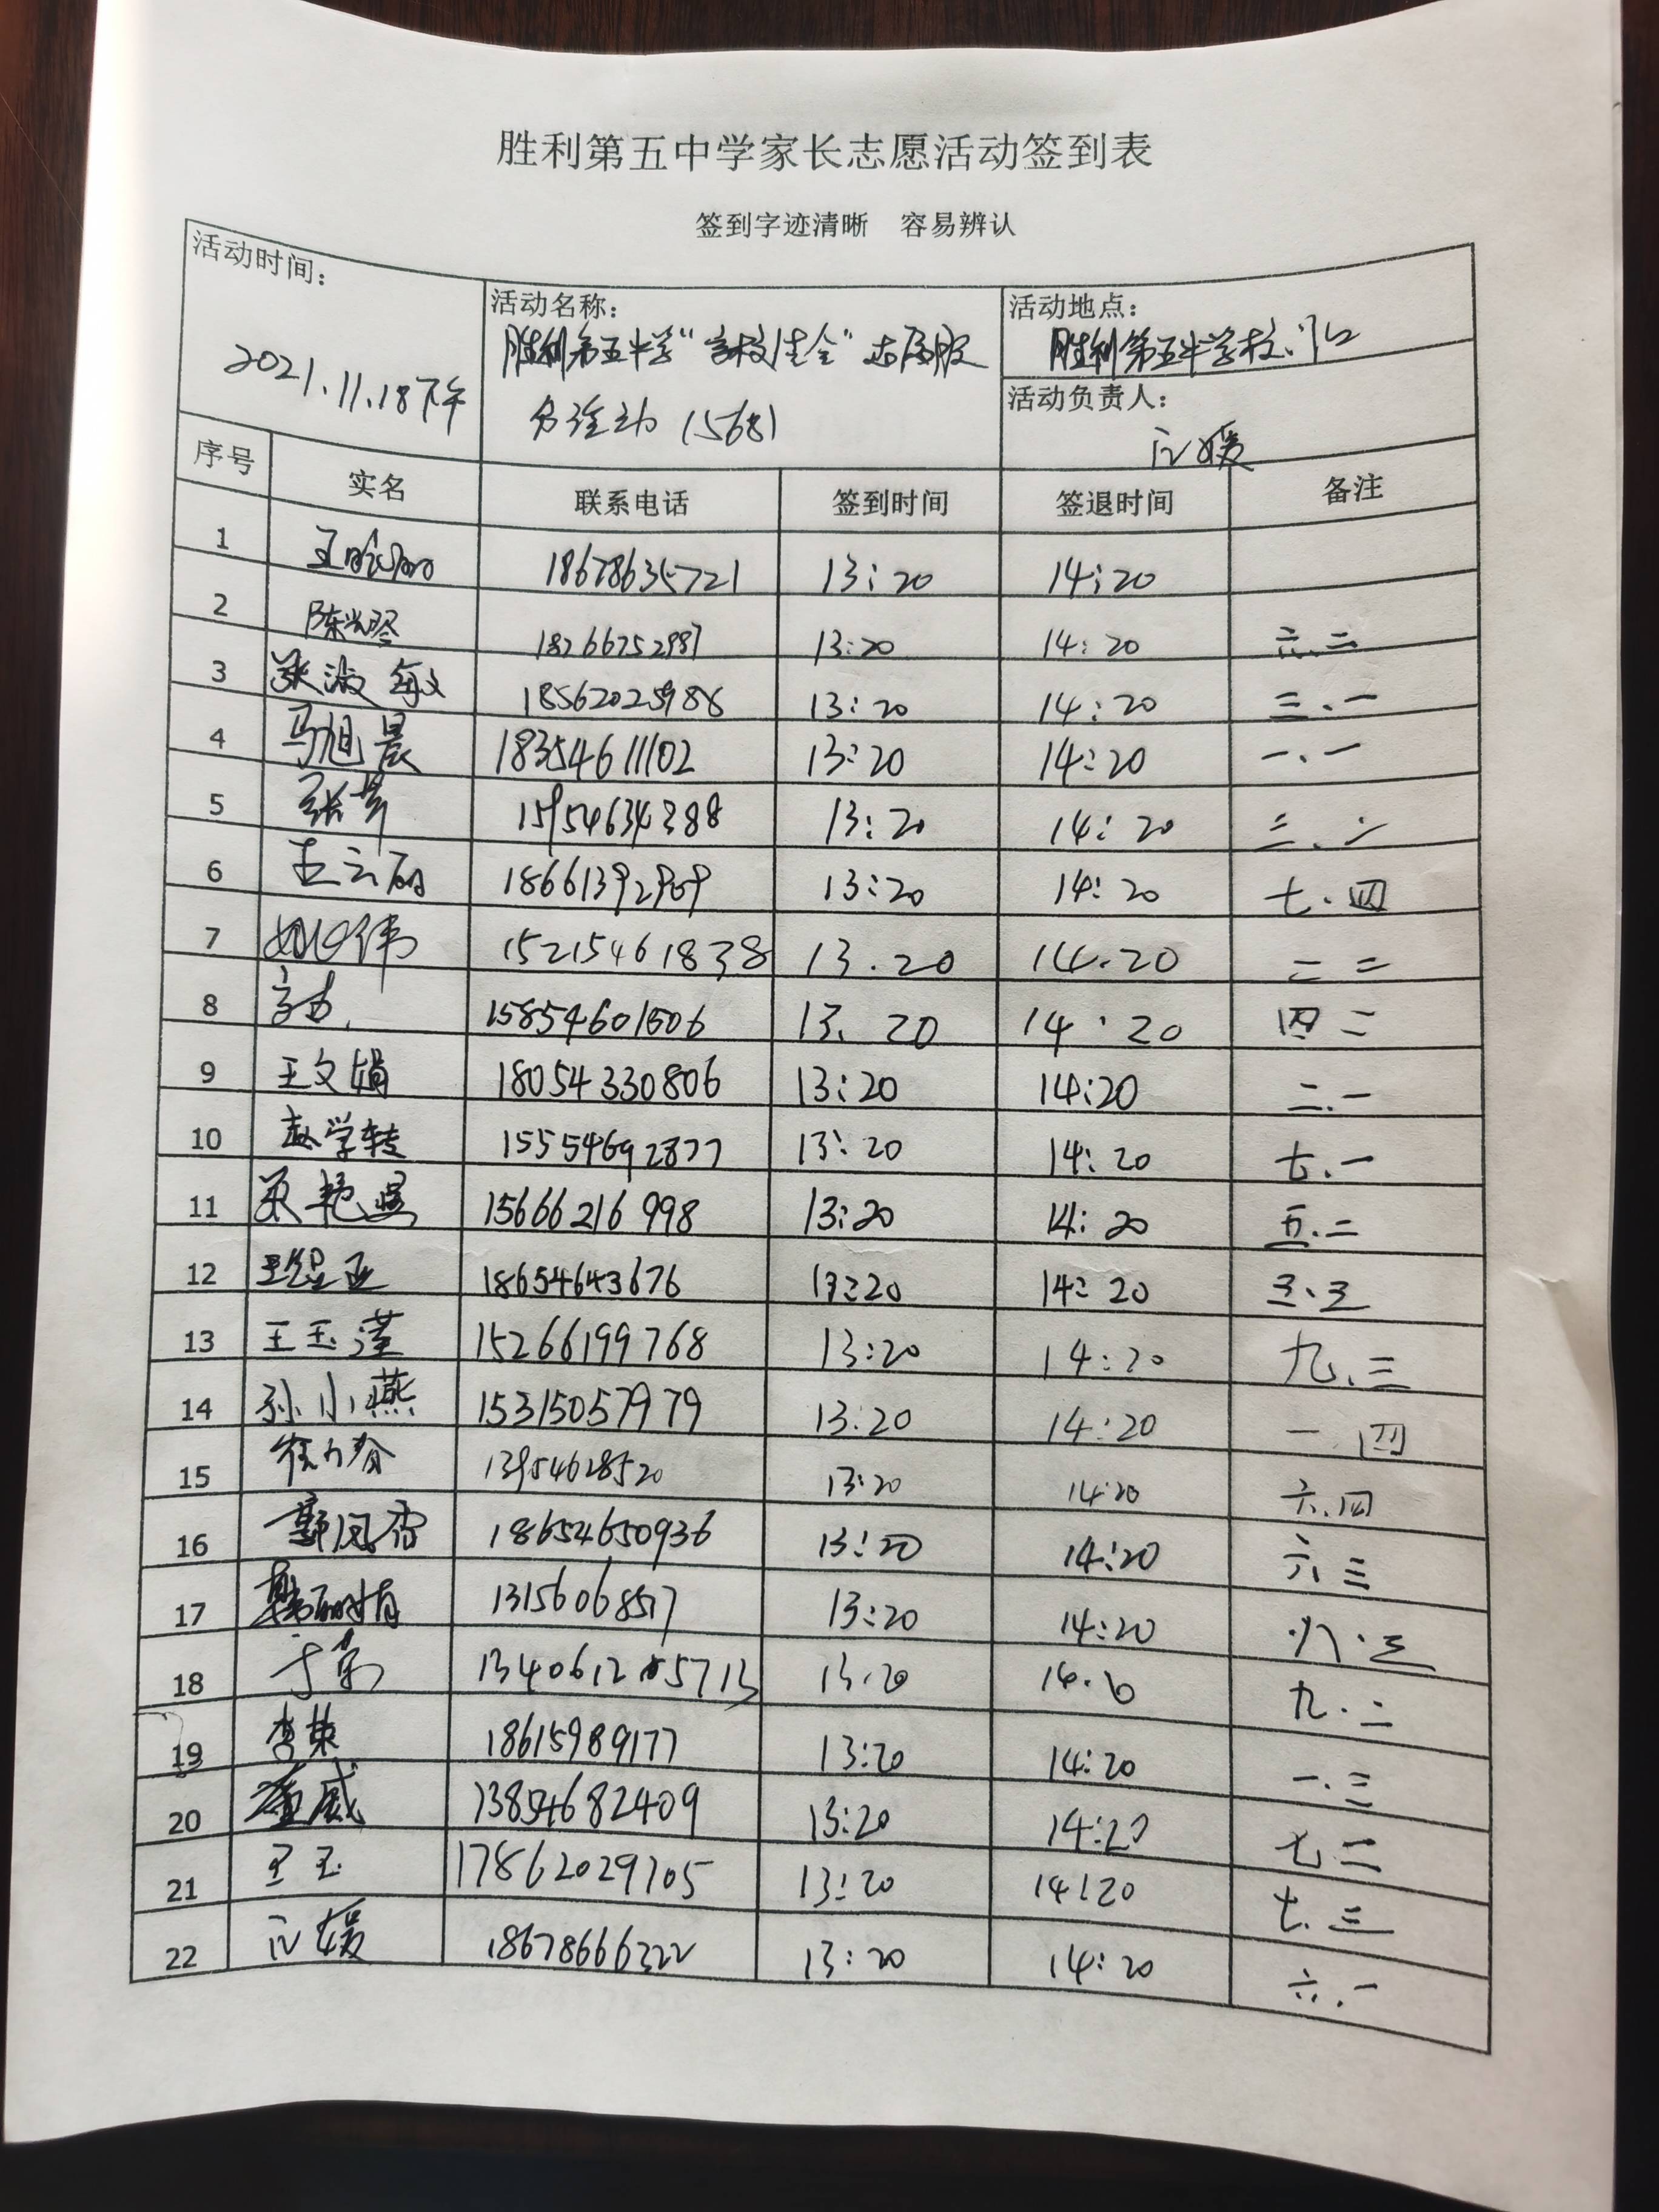 胜利第五中学家长志愿活动签到表
签到字迹清晰 容易辨认
活动时间： 2021.11.18下午
活动名称： 胜利第五中学“ 安全”志愿服
务活动 (568)
活动地点： 胜利第五中学校门口
活动负责人： 媛
序号 实名 联系电话 签到时间 签退时间 备注
1 王 丽 18678635721 13:20 14:20
2 陈 琴 18266752987 13:20 14:20 六.二
3 张淑敏 18562025988 13:20 14:20 三.一
4 马旭晨 18354611102 13:20 14:20 一.一
5 张 15954634388 13:20 14:20 三.二
6 王云丽 18661392909 13:20 14:20 七.四
7 姚 伟 15215461838 13.20 14.20 二 二
8 15854601506 13.20 14.20 四二
9 王文娟 18054330806 13:20 14:20 二.一
10 赵学转 15554692877 13:20 14:20 七.一
11 艳 15666216998 13:20 14:20 五.二
12 王 亚 18654643676 13:20 14:20 三.三
13 王玉滢 15266199768 13:20 14:20 九.三
14 孙小燕 15315057979 13:20 14:20 一.四
15 13954628520 13:20 14:20 六.四
16 郭凤香 18654650936 13:20 14:20 六.三
17 韩丽娟 13156068517 13:20 14:20 八.三
18 于 13:20 九.二
19 李荣 18615989177 13:20 14:20 一.三
20 董威 13854682409 13:20 14:20 七二
21 王玉 17862029705 13:20 14:20 七.三
22 媛 18678666322 13:20 14:20 六.一